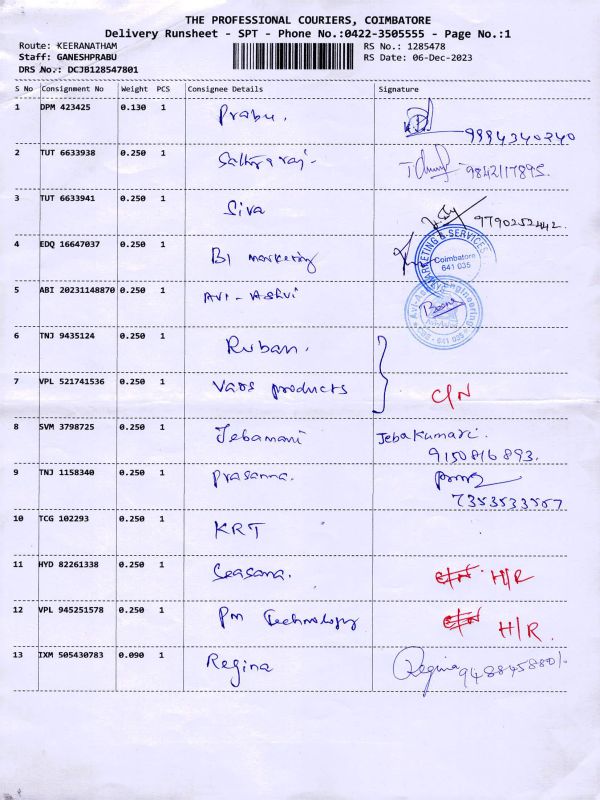 THE PROFESSIONAL COURIERS, COIMBATORE
Delivery Runsheet - SPT - Phone No.:0422-3505555 - Page No.:1
Route: KEERANATHAM
RS No.: 1285478
Staff: GANESHPRABU
RS Date: 06-Dec-2023
DRS No.: DCJB128547801
S No Consignment No Weight PCS Consignee Details Signature
1 DPM 423425 0.130 1 Prabu. 9994340240
2 TUT 6633938 0.250 1 Sathya raj- 9842117895.
3 TUT 6633941 0.250 1 Siva 9790252442.
4 EDQ 16647037 0.250 1 BI marketing
MARKETING & SERVICES
Coimbatore
641 035
5 ABI 20231148870 0.250 1 AVI - Ashvi
Engineering
641 035
6 TNJ 9435124 0.250 1 Ruban.
7 VPL 521741536 0.250 1 Vaos products C/N
8 SVM 3798725 0.250 1 Jebamani Jeba Kumari.
9150816893.
9 TNJ 1158340 0.250 1 Prasanna.
7353533557
10 TCG 102293 0.250 1 KRT
11 HYD 82261338 0.250 1 Seasana. H/R
12 VPL 945251578 0.250 1 Pm Technology H/R.
13 IXM 505430783 0.090 1 Regina Regina 9488458801.